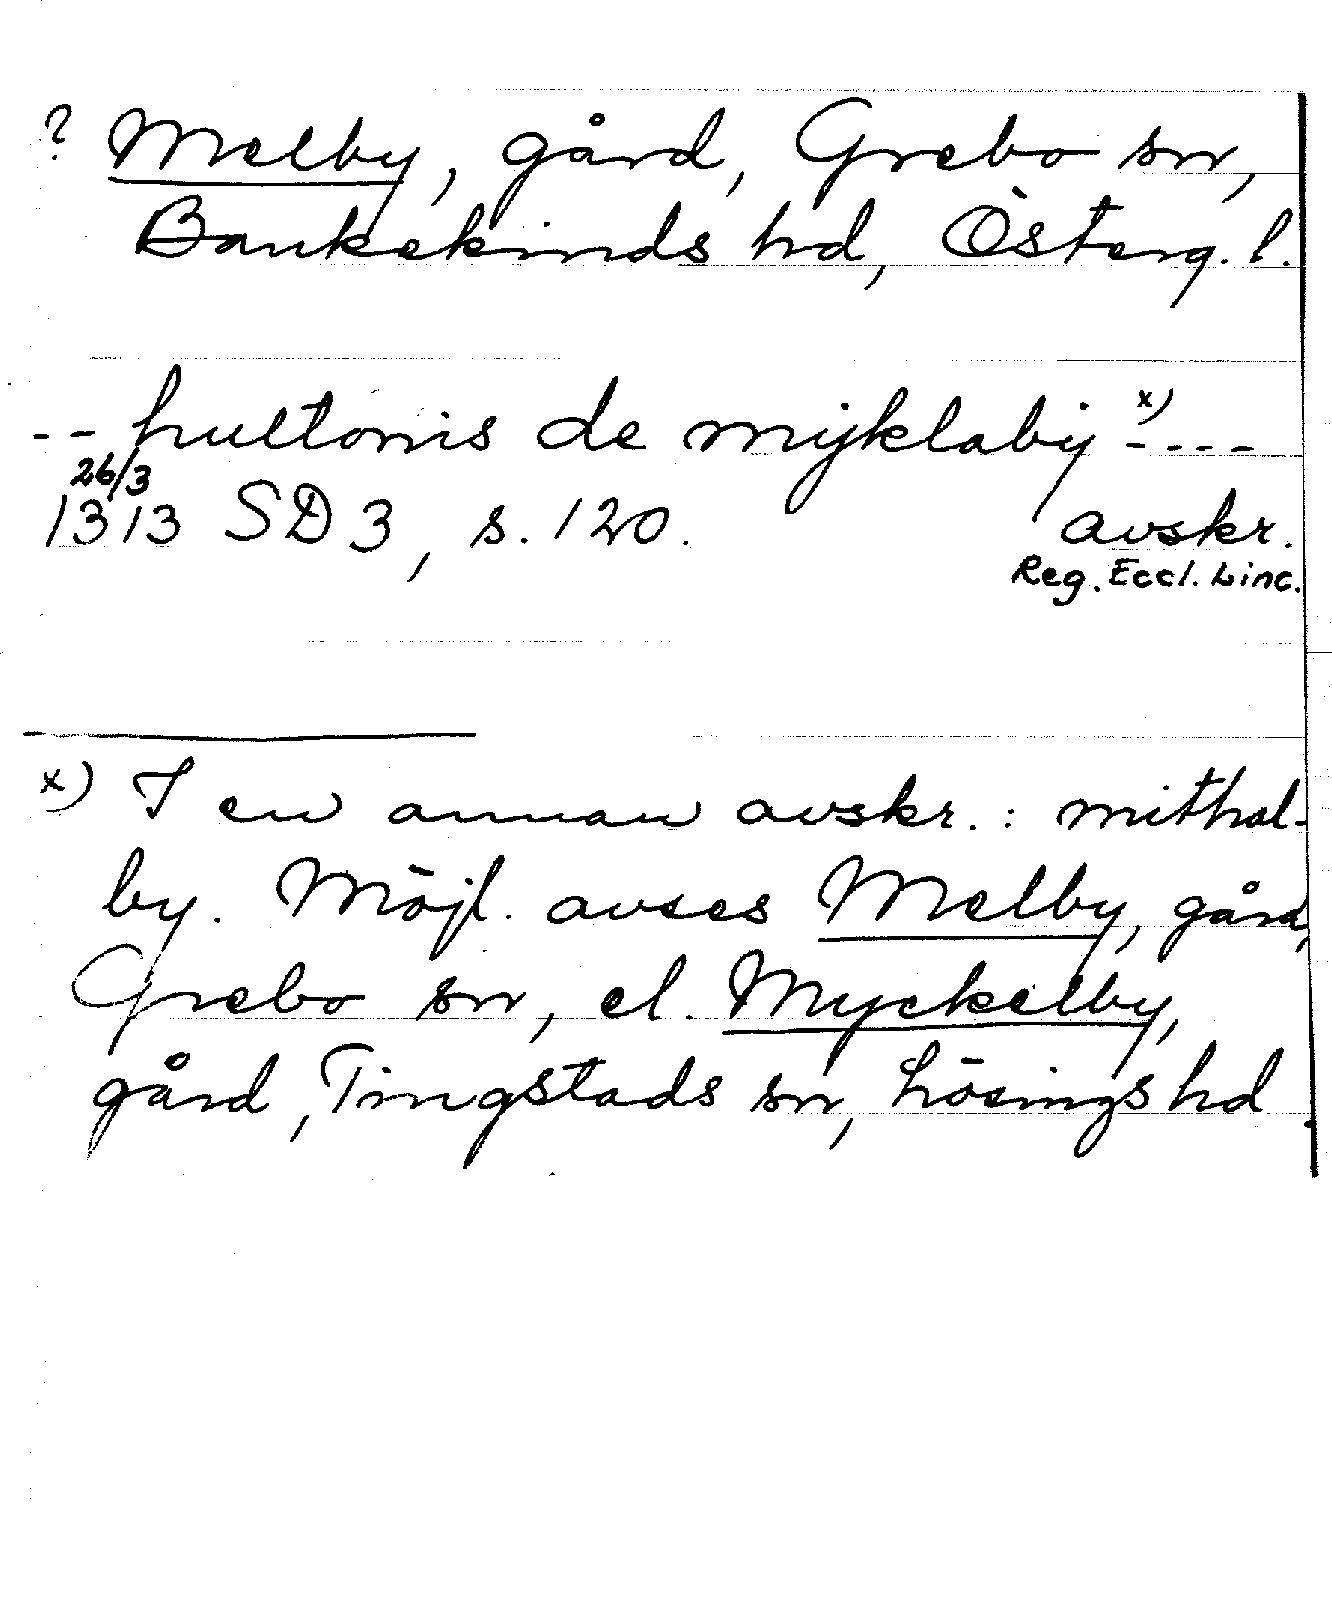 ? Melby, gård, Grebo sn,
Bankekinds hd, Österg. l.
-- hultonis de mijklabij x) ----
26/3
1313 SD 3, s. 120. avskr.
Reg. Eccl. Linc.
x) I en annan avskr.: mithal-
by. Möjl. avses Melby, gård,
Grebo sn, el. Myckelby,
gård, Tingstads sn, Lösings hd.